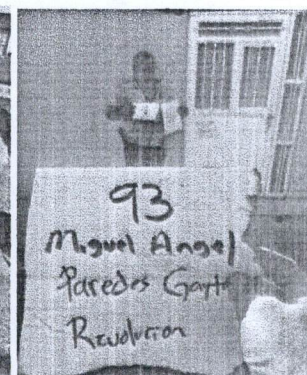 93
Miguel Angel
Paredes
Revolucion